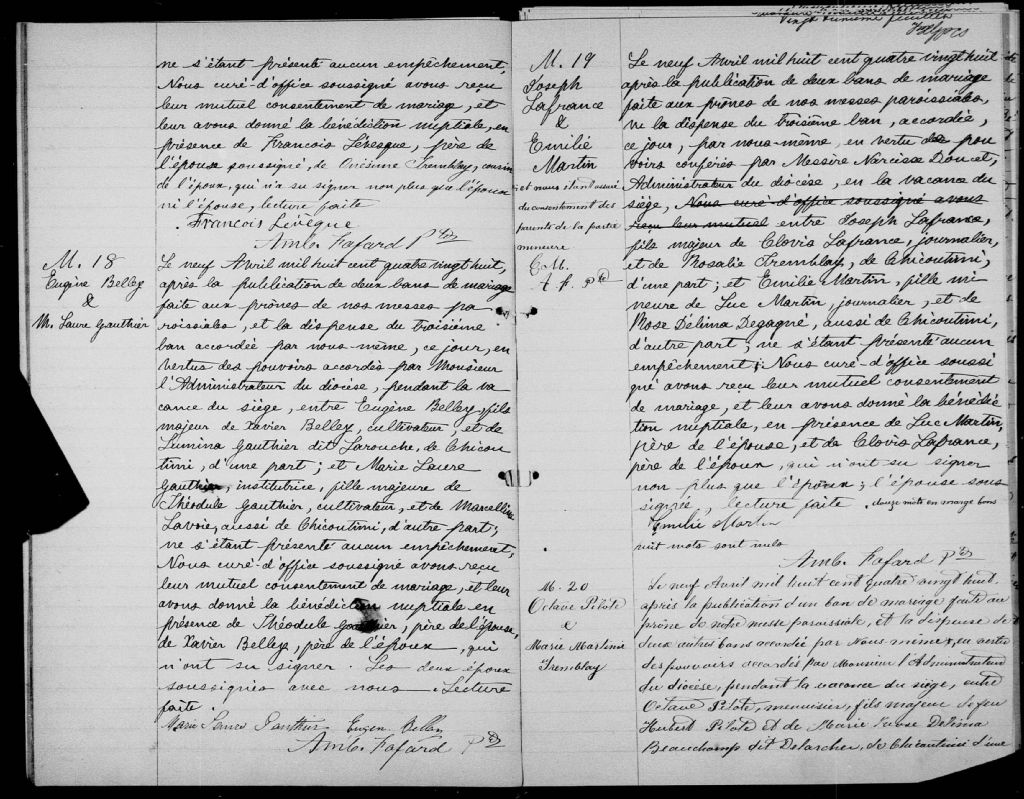 ne s'étant présenté aucun empêchement,
Nous curé-d'office soussigné avons reçu
leur mutuel consentement de mariage, et
leur avons donné la bénédiction nuptiale, en
présence de Francois Lévesque, père de
l'épouse soussigné, de Onésime Tremblay, cousin
de l'époux, qui n'a su signer non plus que l'époux
ni l'épouse, lecture faite
Francois Lévêque
Amb. Fafard Ptre
M. 18
Eugène Belley
&
M. Laure Gauthier
Le neuf Avril mil huit cent quatre vingt huit,
après la publication de deux bans de mariage
faite aux prônes de nos messes pa
roissiales, et la dispense du troisième
ban accordée par nous-même, ce jour, en
vertus des pouvoirs accordés par Monsieur
l'Administrateur du diocèse, pendant la va
cance du siège, entre Eugène Belley, fils
majeur de Xavier Belley, cultivateur, et de
Lumina Gauthier dit Larouche, de Chicou
timi, d'une part; et Marie Laure
Gauthier, institutrice, fille majeure de
Théodule Gauthier, cultivateur, et de Marcelline
Lavoie, aussi de Chicoutimi, d'autre part;
ne s'étant présenté aucun empêchement,
Nous curé-d'office soussigné avons reçu
leur mutuel consentement de mariage, et leur
avons donné la bénédiction nuptiale en
présence de Théodule Gauthier, père de l'épouse,
de Xavier Belley, père de l'époux, qui
n'ont su signer. Les deux époux
soussignés avec nous. Lecture
faite.
Marie Laure Gauthier Eugen Belley
Amb. Fafard Ptre
vingt unième feuillet
M. 19
Joseph
Lafrance
&
Emilie
Martin
et nous étant assuré
du consentement des
parents de la partie
mineure
C. M.
A. f. Ptre
Le neuf Avril mil huit cent quatre vingt huit
après la publication de deux bans de mariage
faite aux prônes de nos messes paroissiales,
vu la dispense du troisième ban, accordée,
ce jour, par nous-même, en vertu de pou
voirs conférés par Messire Narcisse Doucet,
Administrateur du diocèse, en la vacance du
siège, Nous curé-d'office soussigné avons
reçu leur mutuel entre Joseph Lafrance,
fils majeur de Clovis Lafrance, journalier,
et de Rosalie Tremblay, de Chicoutimi,
d'une part; et Emilie Martin, fille mi
neure de Luc Martin, journalier, et de
Rose Délima Degagné, aussi de Chicoutimi,
d'autre part; ne s'étant présenté aucun
empêchement; Nous curé-d'office soussi
gné avons reçu leur mutuel consentement
de mariage, et leur avons donné la bénédic
tion nuptiale, en présence de Luc Martin,
père de l'épouse, et de Clovis Lafrance,
père de l'époux, qui n'ont su signer
non plus que l'époux; l'épouse sous
signée, lecture faite. douze mots en marge bons
Emilie Martin
huit mots sont nuls
Amb. Fafard Ptre
M. 20
Octave Pilote
&
Marie Martine
Tremblay
Le neuf Avril mil huit cent quatre vingt huit
après la publication d'un ban de mariage faite au
prône de notre messe paroissiale, et la dispense de
deux autres bans accordée par Nous même, en vertu
des pouvoirs accordés par Monsieur l'Administrateur
du diocèse, pendant la vacance du siège, entre
Octave Pilote, menuisier, fils majeur de feu
Hubert Pilote et de Marie Delima
Beauchamp dit de Chicoutimi d'une